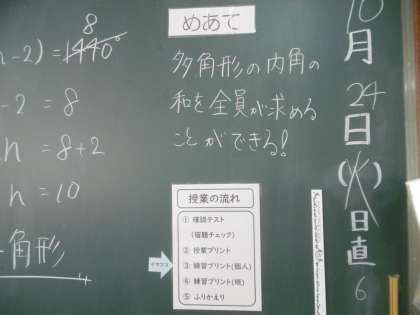 8
n-2)=1440°
-2 = 8
n = 8+2
n = 10
角形
めあて
多角形の内角の
和を全員が求める
ことができる!
授業の流れ
① 確認テスト
(宿題チェック)
② 授業プリント
③ 練習プリント(個人)
④ 練習プリント(班)
⑤ ふりかえり
イマココ
10
月
24
日
(火)
日
直
6